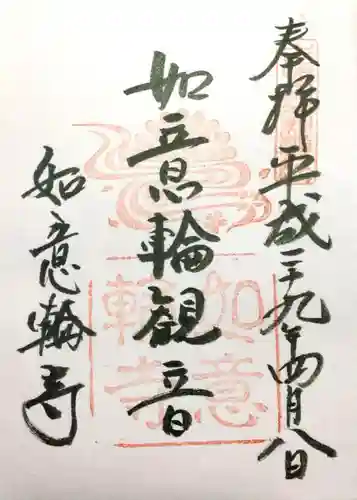 奉拝 平成二十九年四月八日
如意輪観音
如意輪寺
如意
輪寺